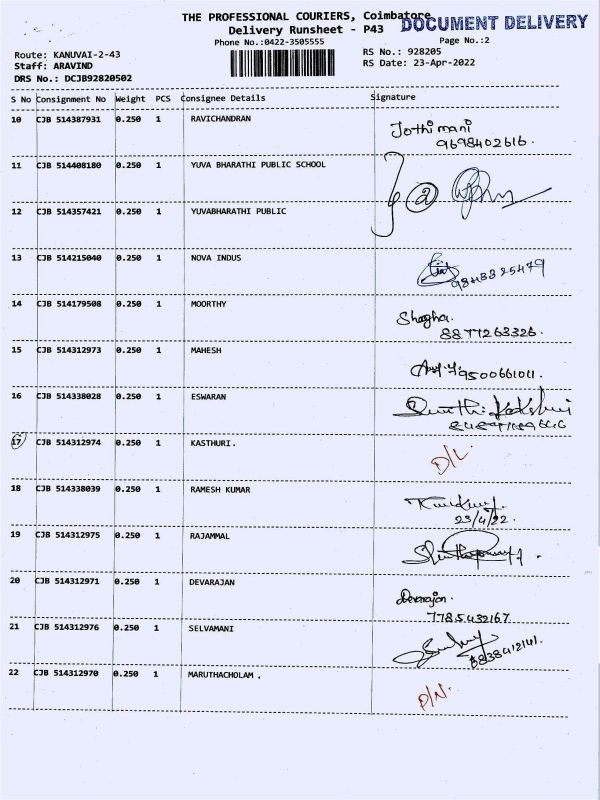 THE PROFESSIONAL COURIERS, Coimbatore
DOCUMENT DELIVERY
Delivery Runsheet - P43
Phone No.:0422-3505555
Page No.:2
Route: KANUVAI-2-43
RS No.: 928205
Staff: ARAVIND
RS Date: 23-Apr-2022
DRS No.: DCJB92820502
S No Consignment No Weight PCS Consignee Details Signature
10 CJB 514387931 0.250 1 RAVICHANDRAN Jothimani
9698402616.
11 CJB 514408180 0.250 1 YUVA BHARATHI PUBLIC SCHOOL
12 CJB 514357421 0.250 1 YUVABHARATHI PUBLIC
13 CJB 514215040 0.250 1 NOVA INDUS
9843325479
14 CJB 514179508 0.250 1 MOORTHY Shagha.
8877263326.
15 CJB 514312973 0.250 1 MAHESH
9500661011.
16 CJB 514338028 0.250 1 ESWARAN
17 CJB 514312974 0.250 1 KASTHURI. D/L
18 CJB 514338039 0.250 1 RAMESH KUMAR
23/4/22.
19 CJB 514312975 0.250 1 RAJAMMAL
20 CJB 514312971 0.250 1 DEVARAJAN Devarajan.
7785432167
21 CJB 514312976 0.250 1 SELVAMANI
8838412141.
22 CJB 514312970 0.250 1 MARUTHACHOLAM . P/N.